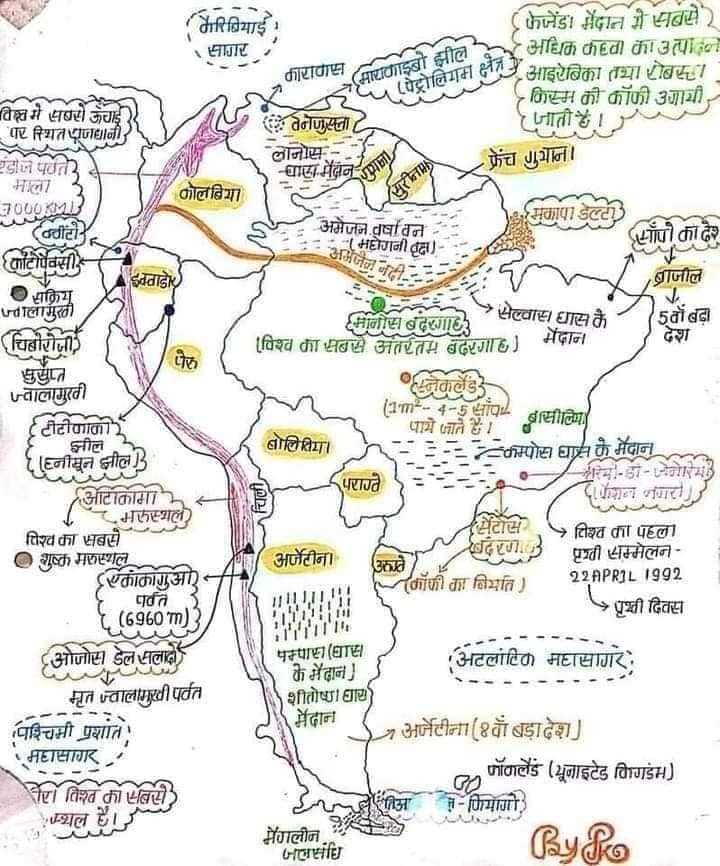 कैरिबियाई
सागर
फेजेंडा मैदान में सबसे
अधिक कहवा का उत्पादन
आइरेबिका तथा रोबस्टा
किस्म की कॉफी उगायी
जाती है।
काराकास
माराकाइबो झील
(पेट्रोलियम क्षेत्र)
विश्व में सबसे ऊंचाई
पर स्थित राजधानी
वेनेजुएला
लानोस
घास मैदान
गुयाना
सूरीनाम
फ्रेंच गुयाना
एंडीज पर्वत
माला
7000KM
कोलंबिया
अमेजन वर्षा वन
(महोगनी वृक्ष)
अमेजन नदी
मकापा डेल्टा
सांपो का देश
ब्राजील
5वाँ बड़ा
देश
क्वीटो
कोटोपैक्सी
सक्रिय
ज्वालामुखी
इक्वाडोर
चिंबोराजो
सुसुप्त
ज्वालामुखी
पेरू
सेल्वास घास के
मैदान
मानोस बंदरगाह
(विश्व का सबसे अंतरतम बंदरगाह)
स्नेकलैंड
(1m² - 4-5 सांप
पाये जाते है।
ब्रासीलिया
टीटीकाका
झील
(हनीमून झील)
बोलिविया
कम्पोस घास के मैदान
रियो-डी-जेनेरियो
(फैशन नगरी)
पराग्वे
चिली
आटाकामा
मरुस्थल
विश्व का सबसे
शुष्क मरुस्थल
सेंटोस
बंदरगाह
(कॉफी का निर्यात)
विश्व का पहला
पृथ्वी सम्मेलन -
22APRIL 1992
पृथ्वी दिवस
अर्जेंटीना
उरुग्वे
एकांकागुआ
पर्वत
(6960 m)
ओजोस डेल सलादो
मृत ज्वालामुखी पर्वत
पम्पास (घास
के मैदान)
शीतोष्ण घास
मैदान
अटलांटिक महासागर
पश्चिमी प्रशांत
महासागर
अर्जेंटीना (8वाँ बड़ा देश)
फॉकलैंड (यूनाइटेड किंगडम)
विश्व का सबसे
स्थल है।
मैगलीन
जलसंधि
By